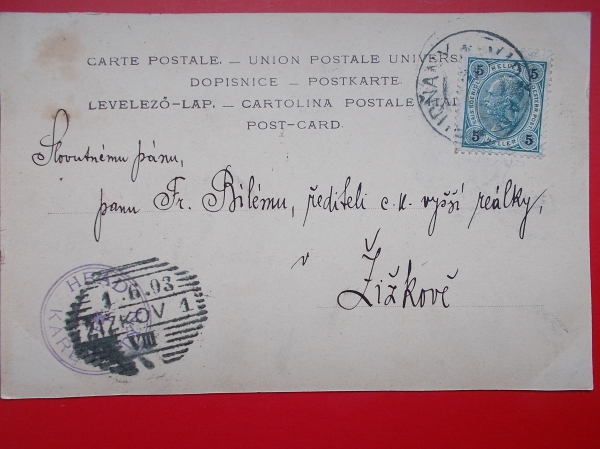 CARTE POSTALE. — UNION POSTALE UNIVERS
DOPISNICE — POSTKARTE
LEVELEZŐ-LAP. — CARTOLINA POSTALE
POST-CARD.
5 HELLER 5
5 HELLER 5
Slovutnému pánu,
panu Fr. Bílému, řediteli c. k. vyšší reálky,
v
Žižkově
1.6.03
ŽIŽKOV 1
VIII